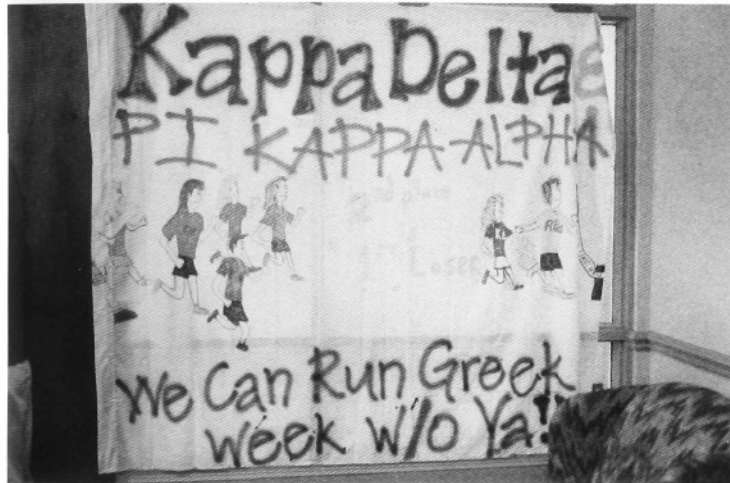 Kappa Delta &
PI KAPPA ALPHA
We Can Run Greek
Week w/o Ya!!